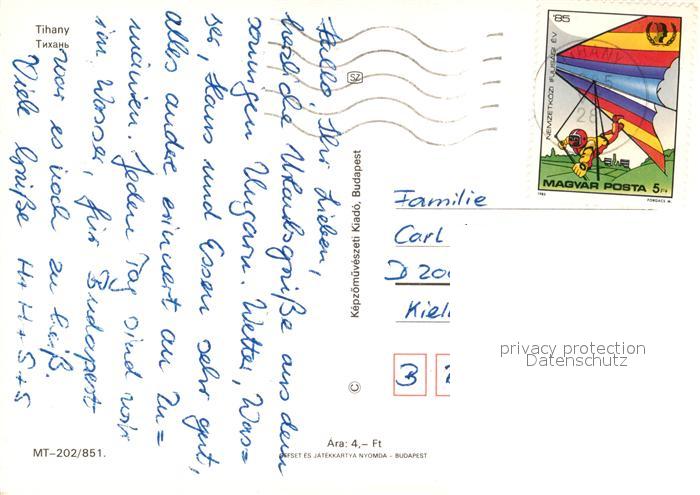 Tihany
Тихань
Hallo, Ihr Lieben,
herzliche Urlaubsgrüße aus dem
sonnigen Ungarn. Wetter, Was=
ser, Haus und Essen sehr gut,
alles andre erinnert an Zu=
Jeden Tag sind wir
im Wasser, für Budapest
war es noch zu heiß.
Viele Grüße H+H+S+S
MT-202/851.
Képzőművészeti Kiadó, Budapest
©
SZ
Ára: 4,– Ft
OFSET ÉS JÁTÉKKÁRTYA NYOMDA – BUDAPEST
'85
NEMZETKÖZI IFJÚSÁGI ÉV
MAGYAR POSTA 5Ft
1985 FORGÁCS M.
TIHANY
Familie
Carl
D 20
Kiel
B
privacy protection
Datenschutz